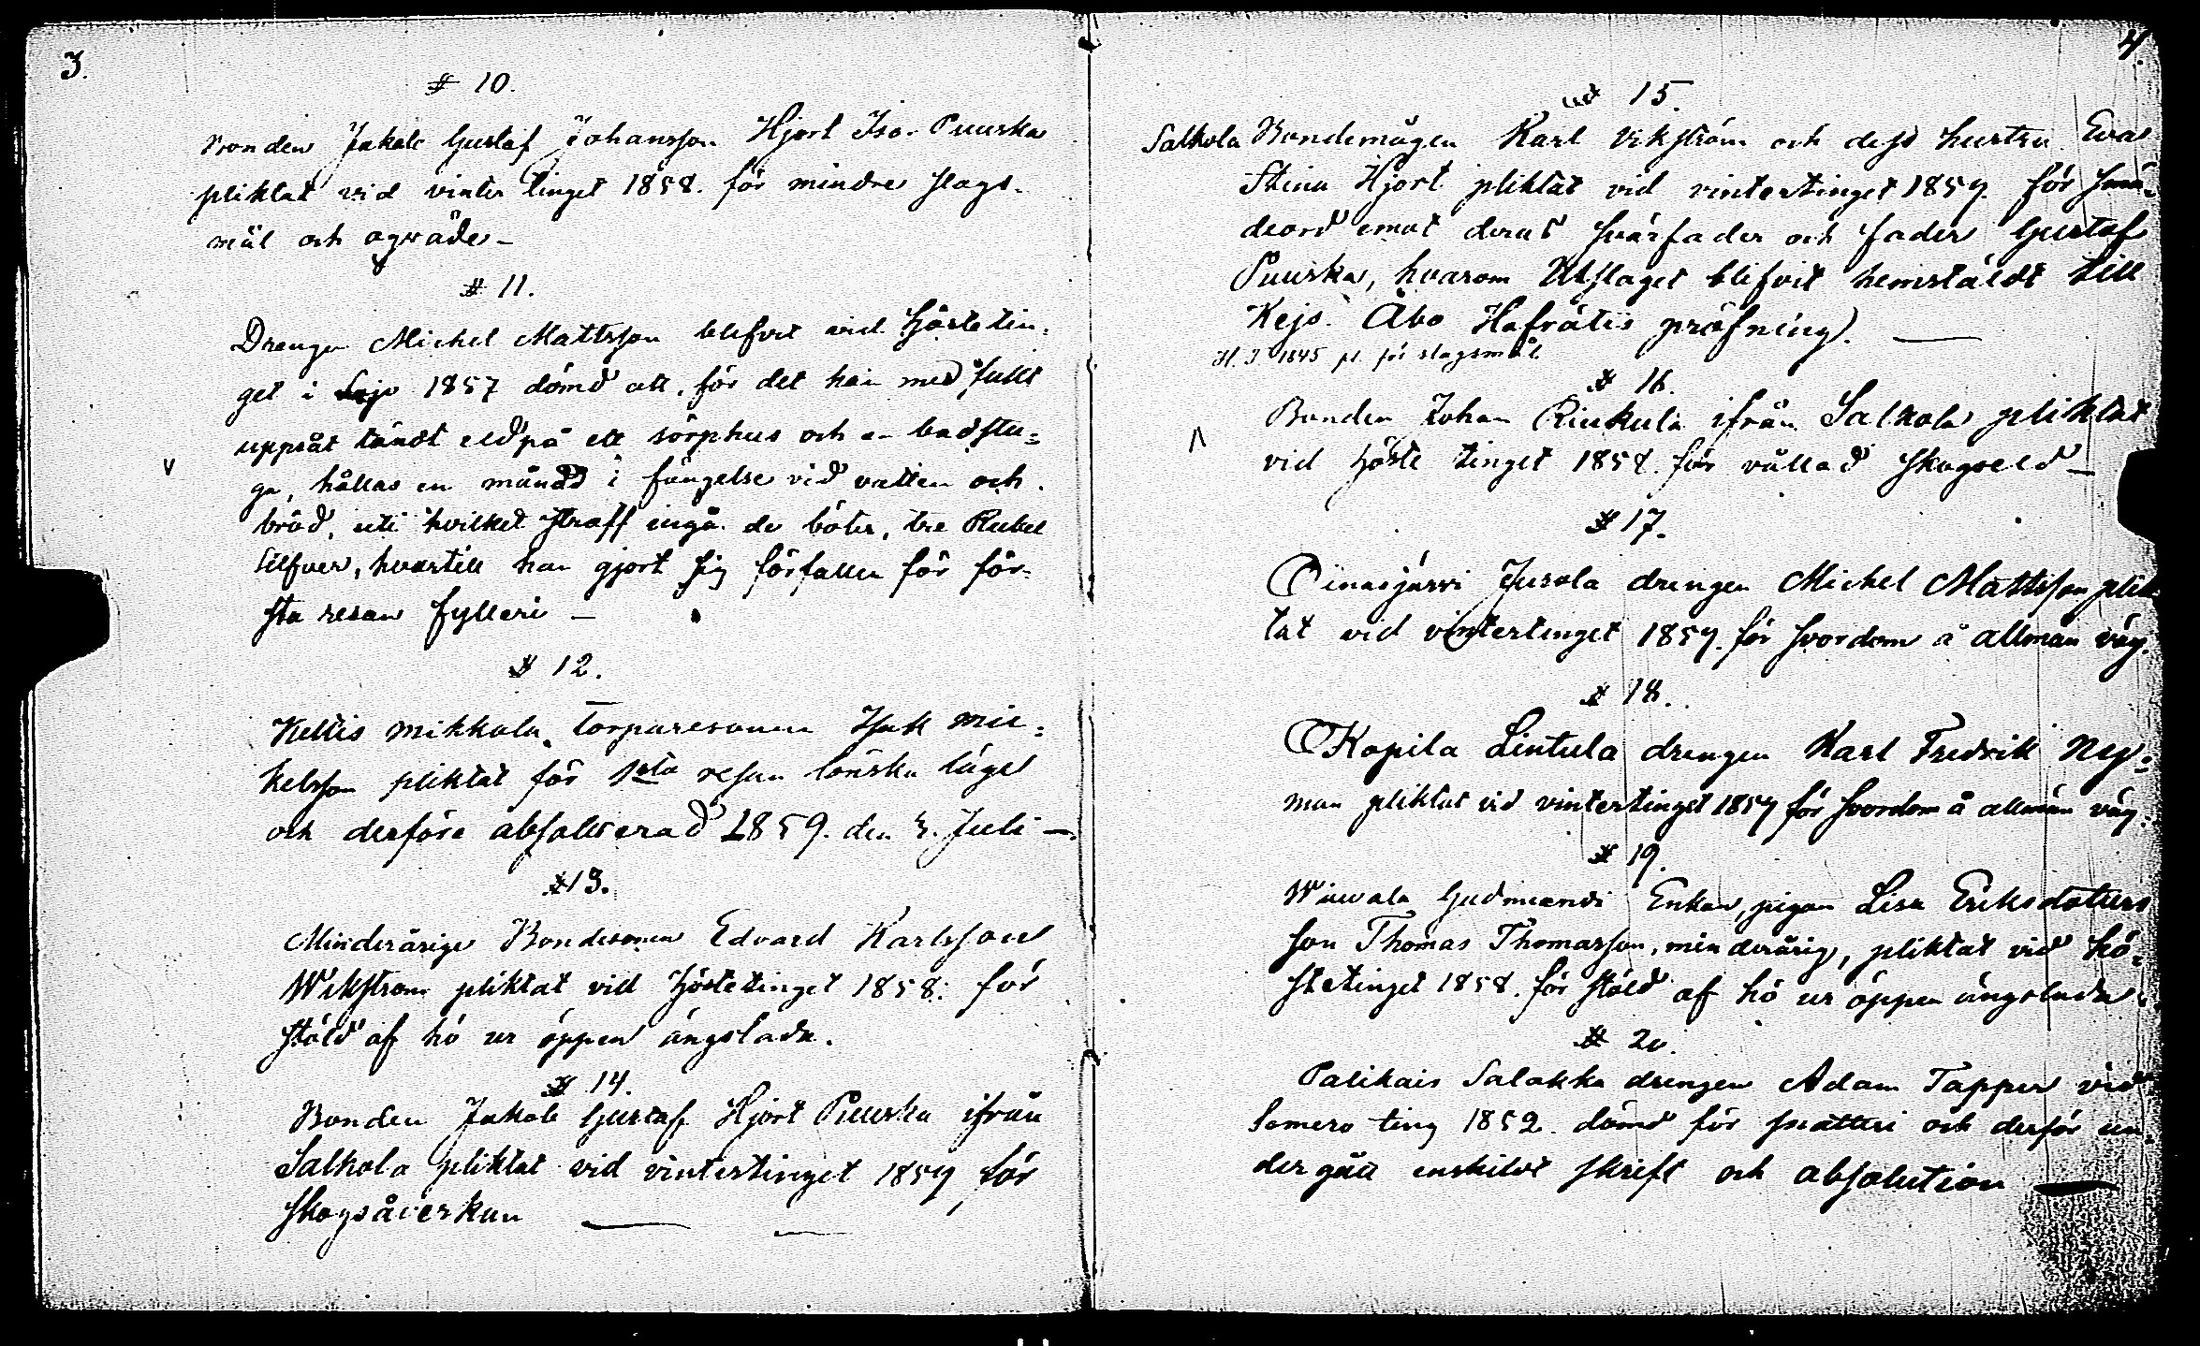 3.
# 10.
Bonden Jakob Gustaf Johansson Hjort Iso-Puuska
pliktat vid vintertinget 1858. för mindre slags-
mål och oqväde –
# 11.
Drengen Michel Mattsson blifvit vid Hösttin-
get i 1857 dömd att, för det han med fullt
uppsåt tändt eld på ett sörphus och en badstu-
ga, hållas en månad i fängelse vid vatten och
bröd, uti hvilket straff ingå de böter, tre Rubel
Silfver, hvartill han gjort sig förfallen för för-
sta resan fylleri –
# 12.
Keltis Mikkola torparesonen Isak Mic-
kelsson pliktat för 1sta resan lönska läge
och derföre absolverad 1859. den 3. Juli –
# 13.
Minderårige Bondesonen Edvard Karlsson
Wikström pliktat vid Höstetinget 1858: för
stöld af hö ur öppen ängslada.
# 14.
Bonden Jakob Gustaf Hjort Puuska ifrån
Salkola pliktat vid vintertinget 1859, för
Skogsåverkan
4.
# 15.
Salkola Bondemågen Karl Vikström och dess hustru Eva
Stina Hjort pliktat vid vintertinget 1859. för smä-
deord emot deras svärfader och fader Gustaf
Puuska, hvarom Utslaget blifvit hemstäldt till
Kejs. Åbo Hofrätts pröfning).
H. T. 1845 pl. för slagsmål
# 16.
Bonden Johan Riukula ifrån Salkola pliktat
vid Höste tinget 1858. för vållad skogseld –
# 17.
Oinasjärvi Jusola drengen Michel Mattsson plik-
tat vid vintertinget 1859. för svordom å allmän väg.
# 18.
Kopila Lintula drengen Karl Fredrik Ny-
man pliktat vid vintertinget 1859 för svordom å allmän väg.
# 19.
Wiuvala Gudmundi Enkan, pigan Lisa Eriksdotters
son Thomas Thomasson, minderårig, pliktat vid hö-
stetinget 1858. för stöld af hö ur öppen ängslada.
# 20.
Palikais Salakka drengen Adam Tapper vid
Somero ting 1852. dömd för snatteri och derför un-
dergått enskildt skrift och absolution